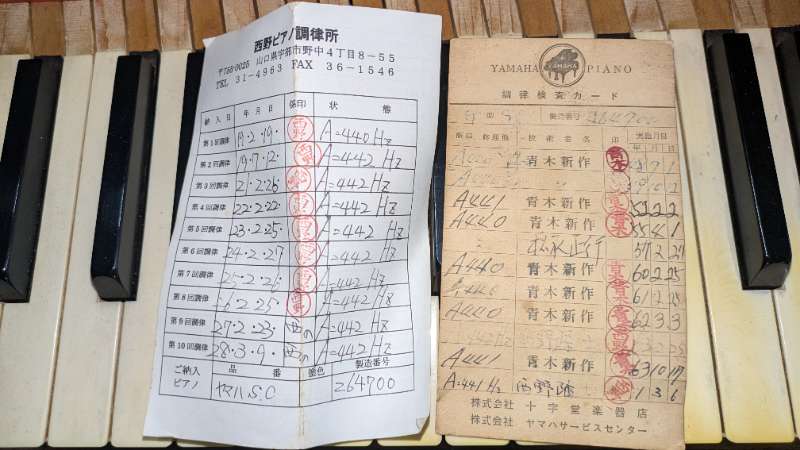 西野ピアノ調律所
〒755-0025 山口県宇部市野中4丁目8-55
TEL 31-4963 FAX 36-1546
納入日 年月日 係印 状態
第1回調律 19・2・19・ A=440Hz
第2回調律 19・7・12・ A=442 Hz
第3回調律 21・2・26 A=442 Hz
第4回調律 22・2・22・ A=442 Hz
第5回調律 23・2・25・ A=442 Hz
第6回調律 24・2・27 A=442 Hz
第7回調律 25・2・26 A=442 Hz
第8回調律 26・2・25・ 西野 A=442 Hz
第9回調律 27・2・23・ 西の A=442 Hz
第10回調律 28・3・9・ 西の A=442 Hz
ご納入ピアノ 品番 塗色 製造番号
ヤマハS.C 264700
YAMAHA PIANO
YAMAHA
調律検査カード
製造番号 264700
技術者名 印 実施月日
年 月 日
青木新作 青木 7 1
A441 青木新作 53 2 2
A440 青木新作 55 4 1
57 2 27
A440 青木新作 60 2 25
青木新作 61 2 25
A440 青木新作 62 3 3
A441 青木新作 63 10 17
A-441 Hz 1 3 6
株式会社 十字堂楽器店
株式会社 ヤマハサービスセンター